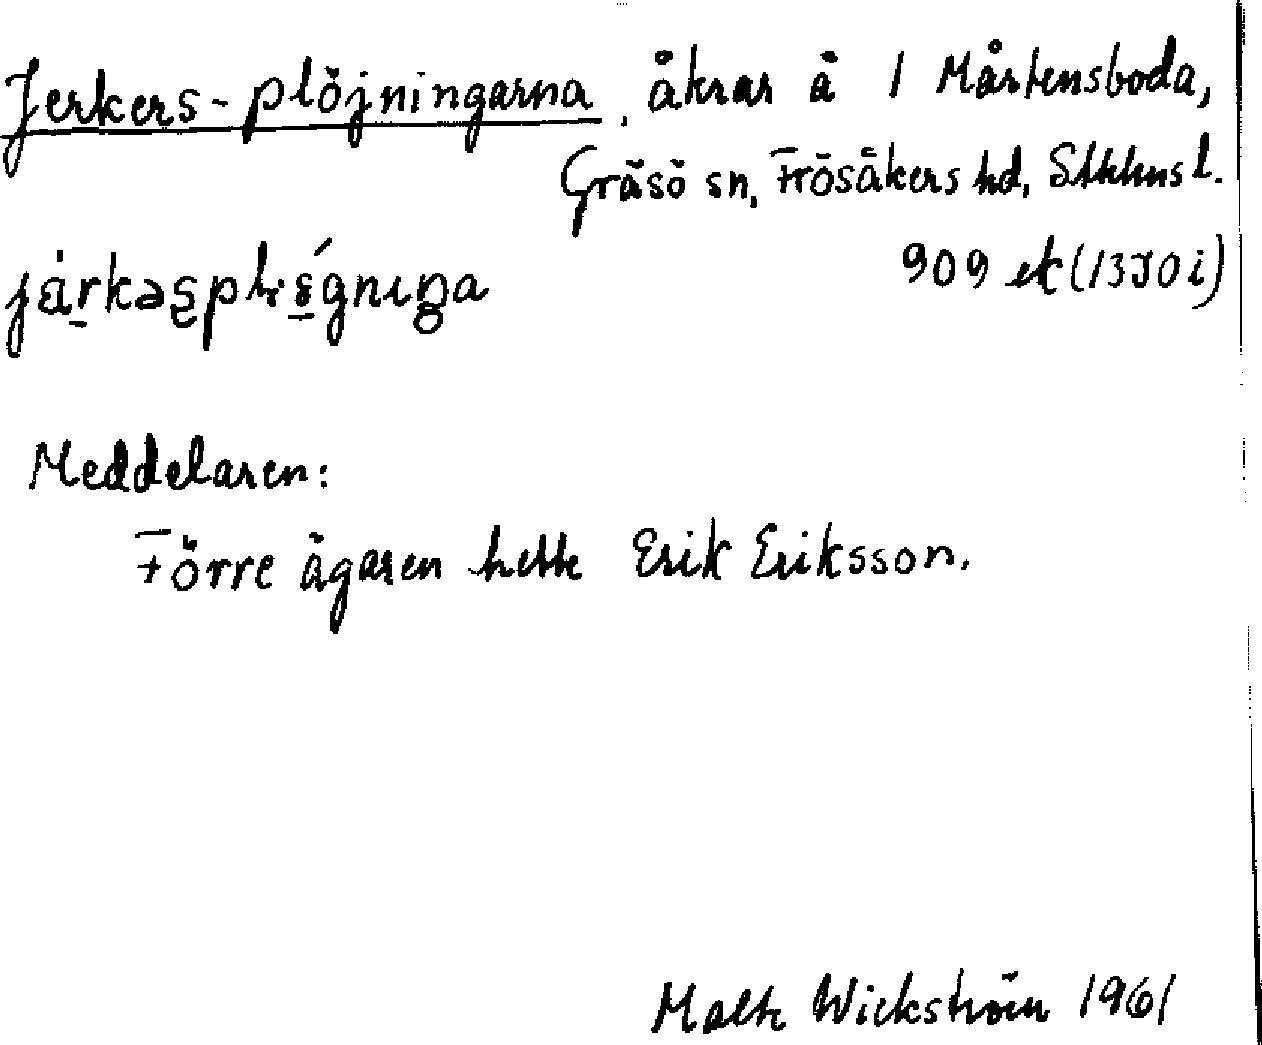 Jerkers-plöjningarna, åkrar å 1 Mårtensboda,
Gräsö sn, Frösåkers hd, Sthlms l.
909 ek (13J0i)
Meddelaren:
Förre ägaren hette Erik Eriksson.
Malte Wickström 1961